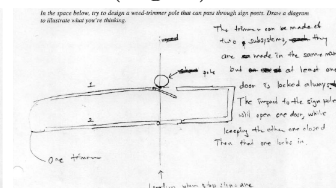 In the space below, try to design a weed-trimmer pole that can pass through sign posts. Draw a diagram
to illustrate what you're thinking.
The trimmer can be made of
two subsystems, they
are made in the same way
but at least one
door is locked always
The impact to the sign pole
will open one door, while
keeping the other one closed
Then that one locks in
pole
1
2
One trimmer